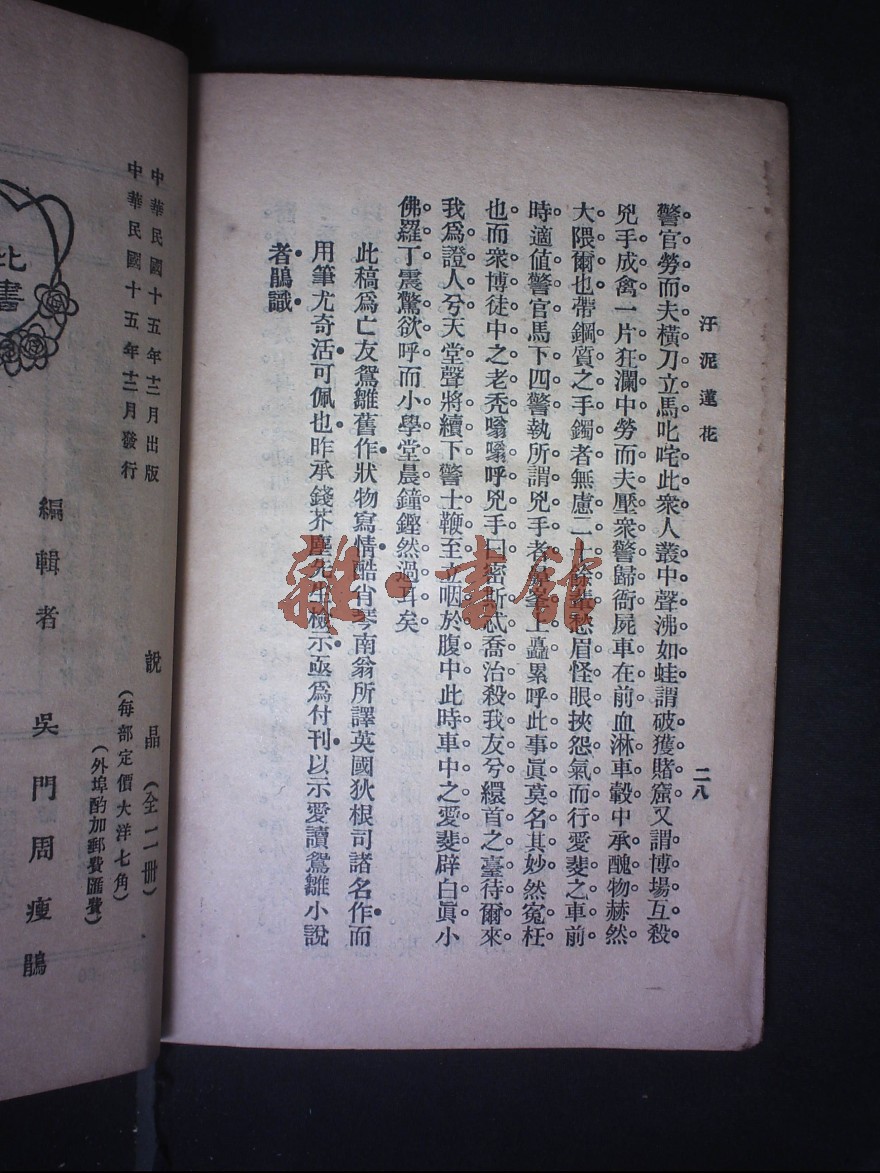 汙泥蓮花
二八
警官勞而夫橫刀立馬叱咤此衆人叢中聲沸如蛙謂破獲賭窟又謂博場互殺
兇手成禽一片狂瀾中勞而夫壓衆警歸衙屍車在前血淋車轂中承醜物赫然
大隈爾也帶鋼質之手鐲者無慮二十餘輩愁眉怪眼挾怨氣而行愛斐之車前
時適値警官馬下四警執所謂兇手者上纍纍呼此事眞莫名其妙然冤枉
也而衆博徒中之老禿嗡嗡呼兇手曰密斯忒喬治殺我友兮繯首之臺待爾來
我爲證人兮天堂聲將續下警士鞭至立咽於腹中此時車中之愛斐辟白眞小
佛羅丁震驚欲呼而小學堂晨鐘鏗然過耳矣
此稿爲亡友鴛雛舊作狀物寫情酷肖琴南翁所譯英國狄根司諸名作而
用筆尤奇活可佩也昨承錢芥塵先生檢示亟爲付刊以示愛讀鴛雛小說
者鵑識
中華民國十五年十二月出版
中華民國十五年十二月發行
說品（全二册）
（每部定價大洋七角）
（外埠酌加郵費匯費）
編輯者 吳門周瘦鵑
此書
雜·書館